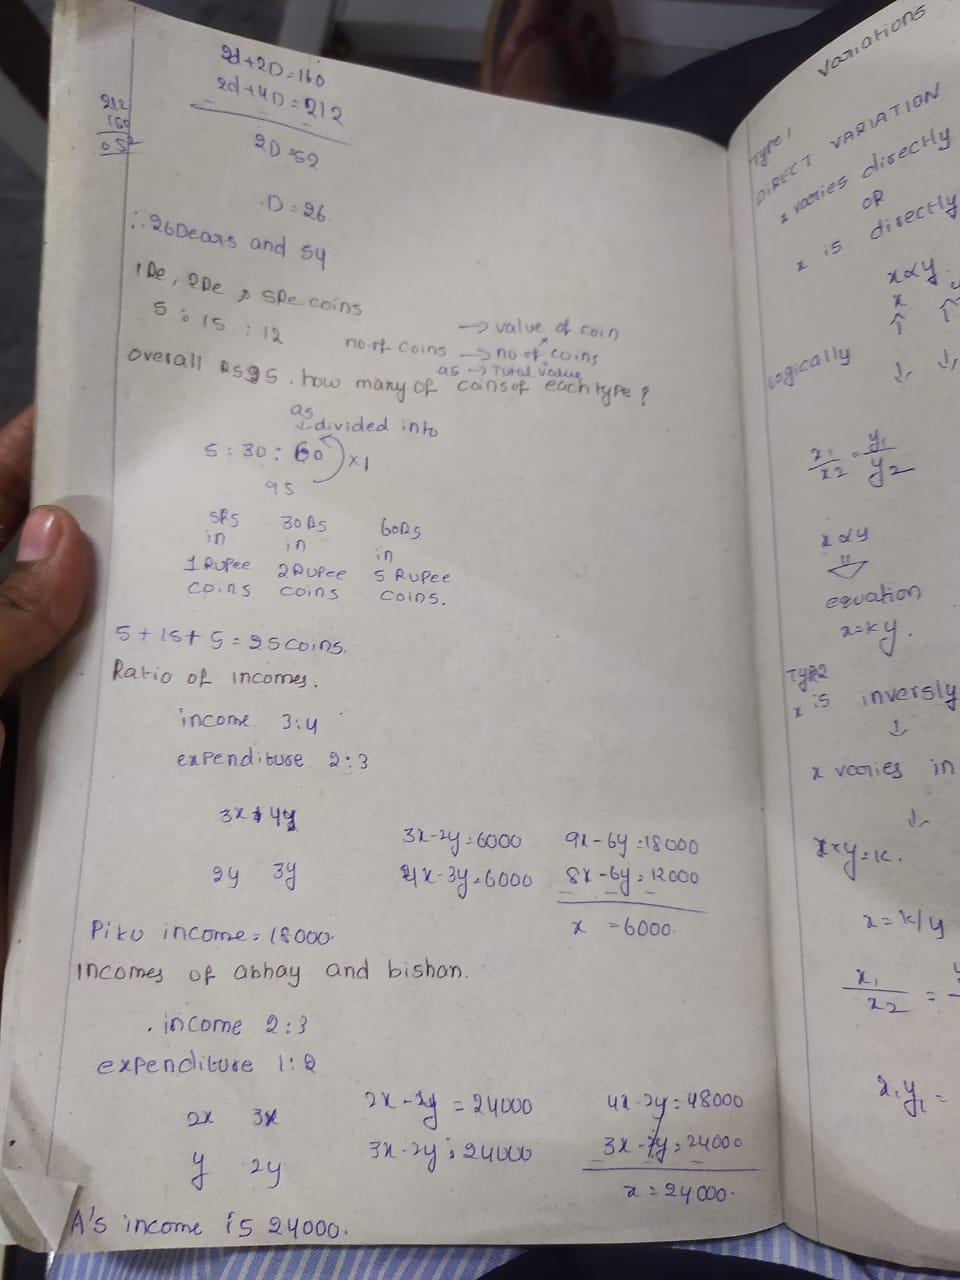 2d+2D=160
2d+4D=212
212
160
052
2D=52
D=26
∴ 26Dears and 54
1Re, 2Re, 5Re coins
5 : 15 : 12
→ value of coin
no.of coins → no of coins
as → Total value
Overall Rs95. how many of coins of each type?
as
↓ divided into
5 : 30 : 60 ) ×1
95
5Rs 30Rs 60Rs
in in in
1 Rupee 2 Rupee 5 Rupee
coins coins coins.
5+15+5=25coins.
Ratio of incomes.
income 3:4
expenditure 2:3
3x 4y
2y 3y
3x-2y=6000 9x-6y=18000
4x-3y=6000 8x-6y=12000
x = 6000.
Piku income=18000.
Incomes of abhay and bishan.
. income 2:3
expenditure 1:2
2x 3x
y 2y
2x-y=24000 4x-2y=48000
3x-2y=24000 3x-2y=24000
x=24000.
A's income is 24000.
Variations
Type 1
DIRECT VARIATION
x varies directly
OR
x is directly
x∝y
x
↑ ↑
logically ↓ ↓
x1/x2 = y1/y2
x∝y
equation
x=ky.
Type2
x is inversly
↓
x varies in
↓
x×y=k.
x=k/y
x1/x2 =
x1y1=